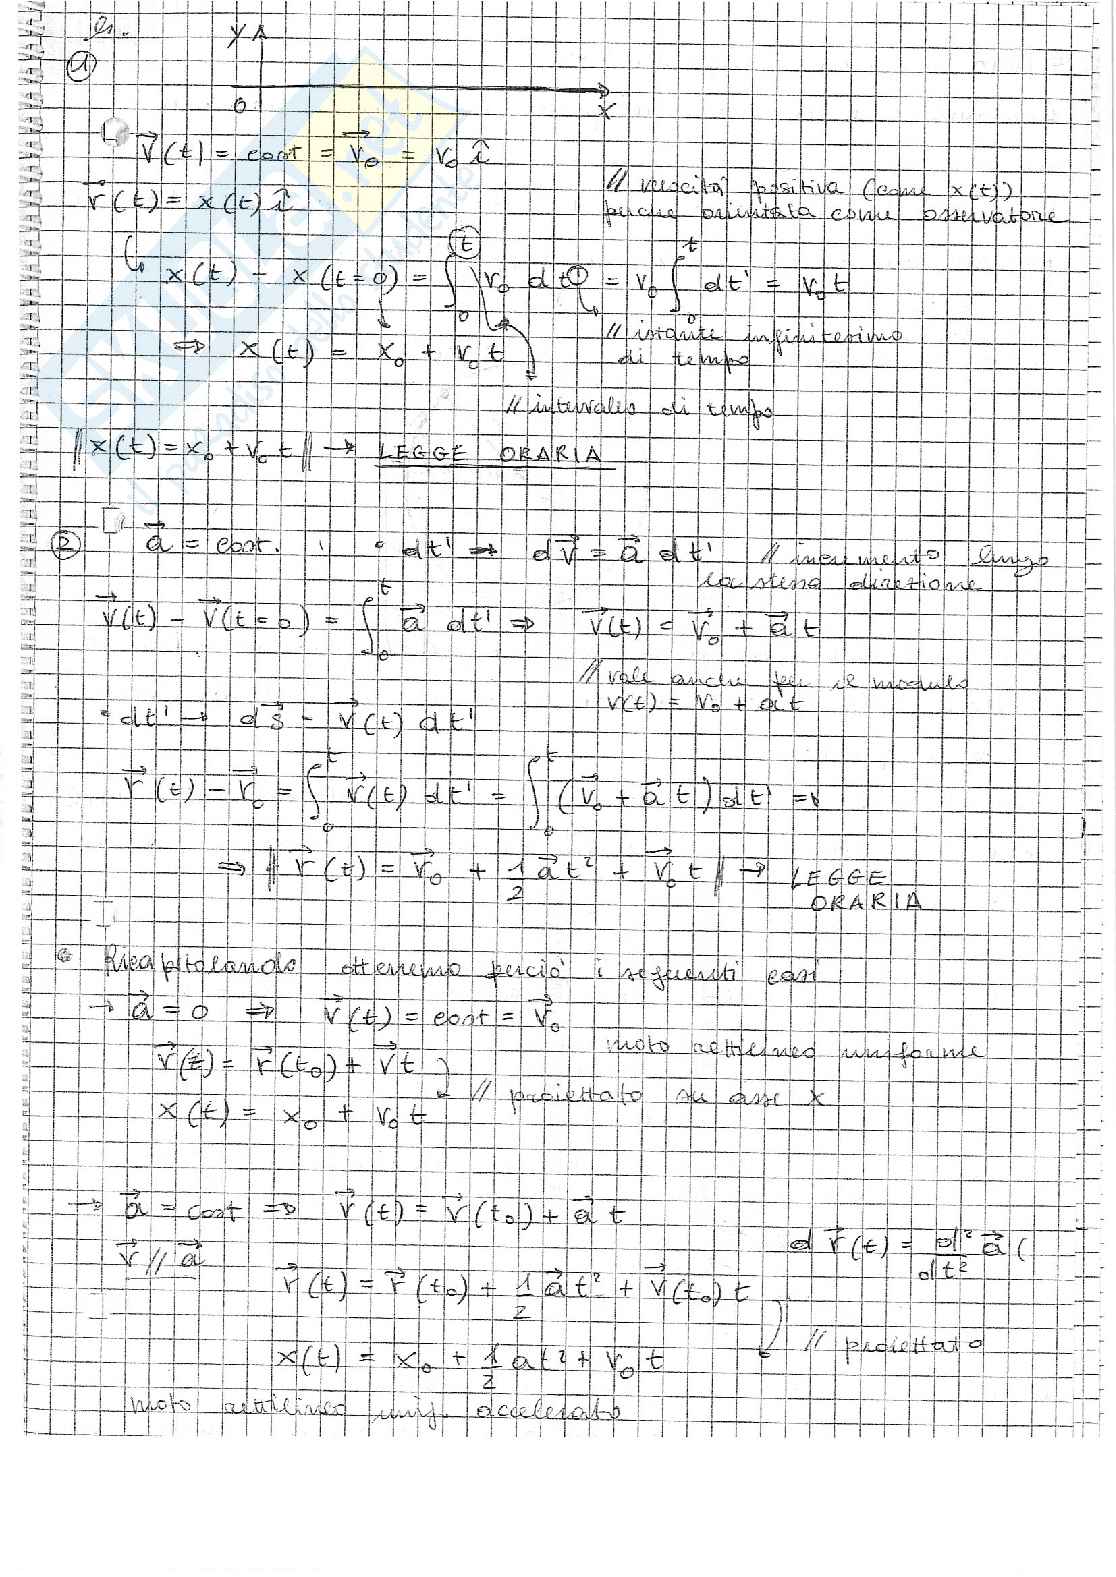 Es.
y
①
0 x
v⃗(t) = cost = v⃗₀ = v₀ î
r⃗(t) = x(t) î
// velocità positiva (come x(t))
perché orientata come osservatore
x(t) - x(t=0) = ∫₀ᵗ v₀ dt' = v₀ ∫₀ᵗ dt' = v₀t
// istante infinitesimo
di tempo
⇒ x(t) = x₀ + v₀t
// intervallo di tempo
||x(t) = x₀ + v₀t|| → LEGGE ORARIA
② a⃗ = cost. • dt' → dv⃗ = a⃗ dt' // incremento lungo
la stessa direzione
v⃗(t) - v⃗(t=0) = ∫₀ᵗ a⃗ dt' ⇒ v⃗(t) = v⃗₀ + a⃗t
// vale anche per il modulo
v(t) = v₀ + at
• dt' → ds⃗ - v⃗(t) dt'
r⃗(t) - r⃗₀ = ∫₀ᵗ v⃗(t) dt' = ∫₀ᵗ (v⃗₀ + a⃗t') dt' ⇒
⇒ || r⃗(t) = r⃗₀ + 1/2 a⃗t² + v⃗₀t || → LEGGE
ORARIA
• Ricapitolando otterremo perciò i seguenti casi
→ a⃗ = 0 ⇒ v⃗(t) = cost = v⃗₀
moto rettilineo uniforme
r⃗(t) = r⃗(t₀) + v⃗t
// proiettato su asse x
x(t) = x₀ + v₀t
→ a⃗ = cost ⇒ v⃗(t) = v⃗(t₀) + a⃗t
v⃗ // a⃗
d r⃗(t) = d²/dt² a⃗ (
r⃗(t) = r⃗(t₀) + 1/2 a⃗t² + v⃗(t₀)t
// proiettato
x(t) = x₀ + 1/2 at² + v₀t
moto rettilineo unif. accelerato